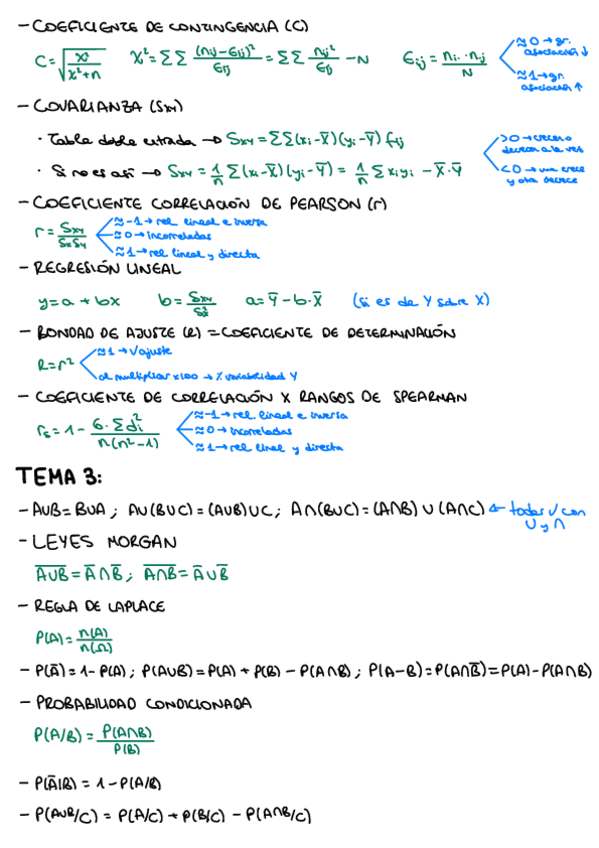 - COEFICIENTE DE CONTINGENCIA (C)
C = √(χ²/(χ²+n))   χ² = ΣΣ (nij - Eij)²/Eij = ΣΣ nij²/Eij - N   Eij = ni. · n.j/N   ≈ 0 → gr. asociación ↓
≈ 1 → gr. asociación ↑
- COVARIANZA (Sxy)
· Tabla doble entrada → Sxy = ΣΣ(xi - X̄)(yj - Ȳ) fij   > 0 → crecen o decrecen a la vez
· Si no es así → Sxy = 1/n Σ(xi - X̄)(yi - Ȳ) = 1/n Σ xiyi - X̄·Ȳ   < 0 → una crece y otra decrece
- COEFICIENTE CORRELACIÓN DE PEARSON (r)
r = Sxy/SxSy   ≈ -1 → rel. lineal e inversa
≈ 0 → incorreladas
≈ 1 → rel. lineal y directa
- REGRESIÓN LINEAL
y = a + bx   b = Sxy/Sx²   a = Ȳ - b·X̄   (si es de Y sobre X)
- BONDAD DE AJUSTE (R) = COEFICIENTE DE DETERMINACIÓN
R = r²   ≈ 1 → √ajuste
al multiplicar x100 → % variabilidad Y
- COEFICIENTE DE CORRELACIÓN X RANGOS DE SPEARMAN
rs = 1 - 6·Σdi²/n(n²-1)   ≈ -1 → rel. lineal e inversa
≈ 0 → incorreladas
≈ 1 → rel. lineal y directa
TEMA 3:
- A∪B = B∪A ; A∪(B∪C) = (A∪B)∪C ; A∩(B∪C) = (A∩B) ∪ (A∩C) ← todas √ con ∪ y ∩
- LEYES MORGAN
A̅∪̅B̅ = A̅ ∩ B̅ ; A̅∩̅B̅ = A̅ ∪ B̅
- REGLA DE LAPLACE
P(A) = n(A)/n(Ω)
- P(A̅) = 1 - P(A) ; P(A∪B) = P(A) + P(B) - P(A∩B) ; P(A-B) = P(A∩B̅) = P(A) - P(A∩B)
- PROBABILIDAD CONDICIONADA
P(A/B) = P(A∩B)/P(B)
- P(A̅|B) = 1 - P(A/B)
- P(A∪B/C) = P(A/C) + P(B/C) - P(A∩B/C)